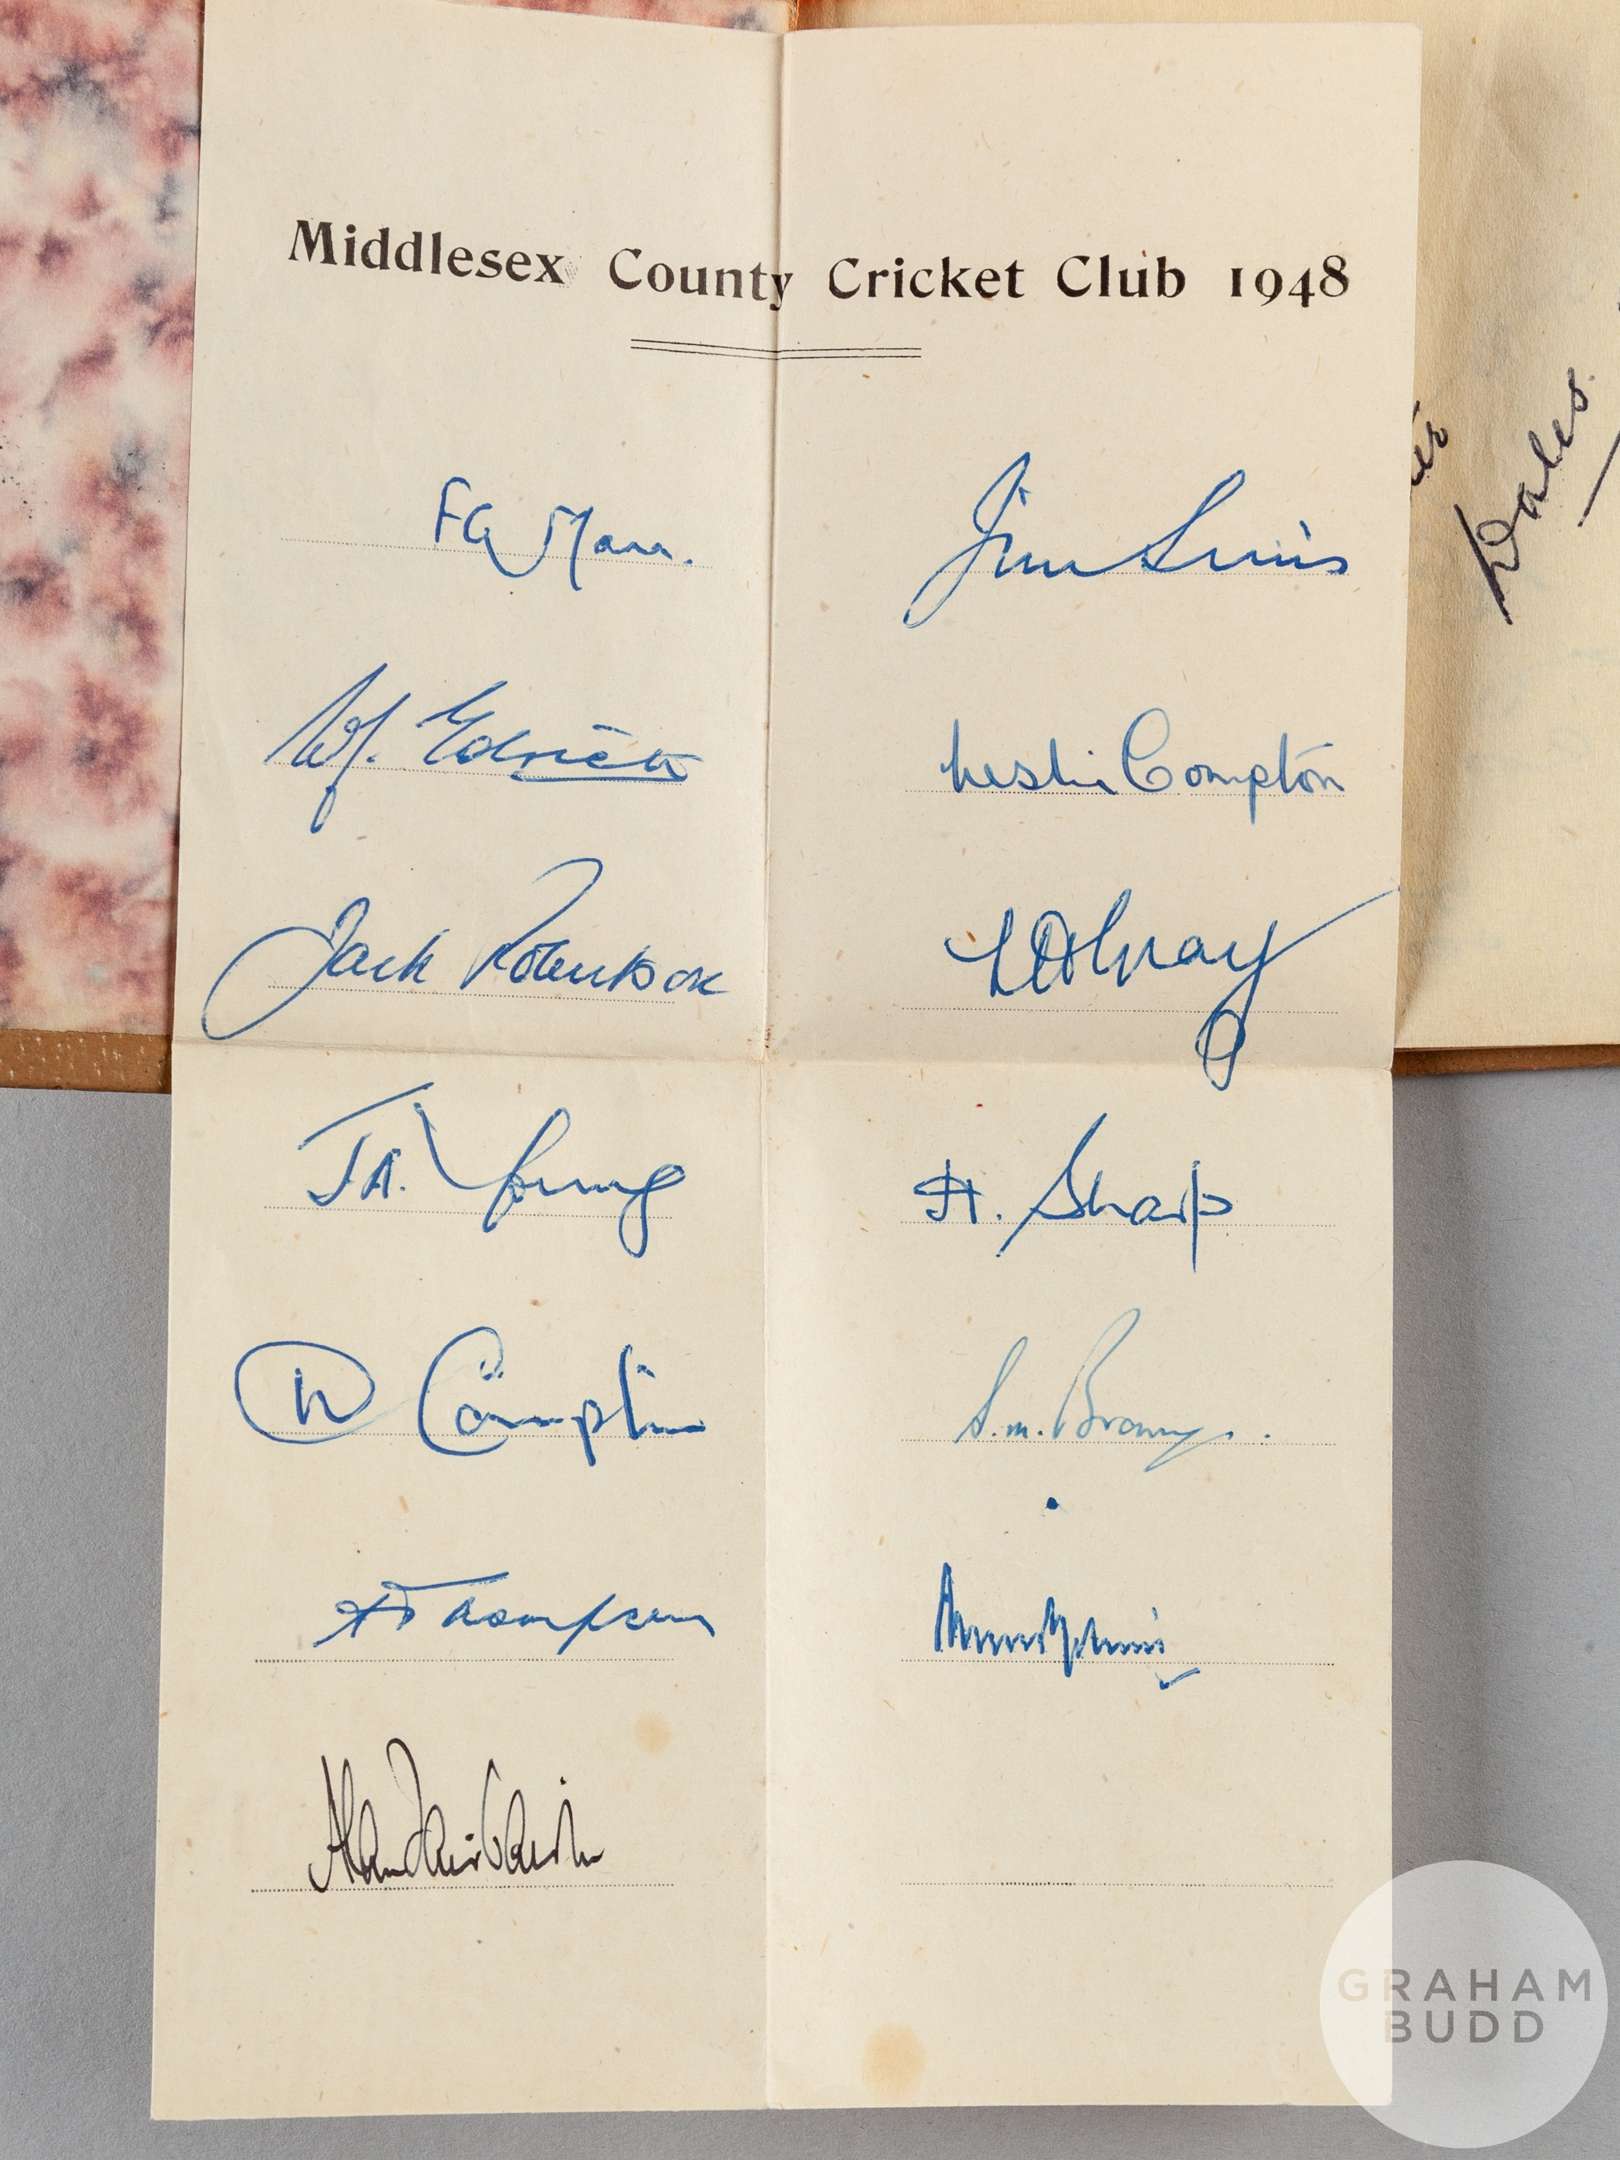 Middlesex County Cricket Club 1948
FG Mann.
Jim Sims
W.J. Edrich
Leslie Compton
Jack Robertson
L H Gray
J A. Young
H. Sharp
D Compton
S. M. Brown.
A Thompson
Alan Fairbairn
Wales.
GRAHAM
BUDD